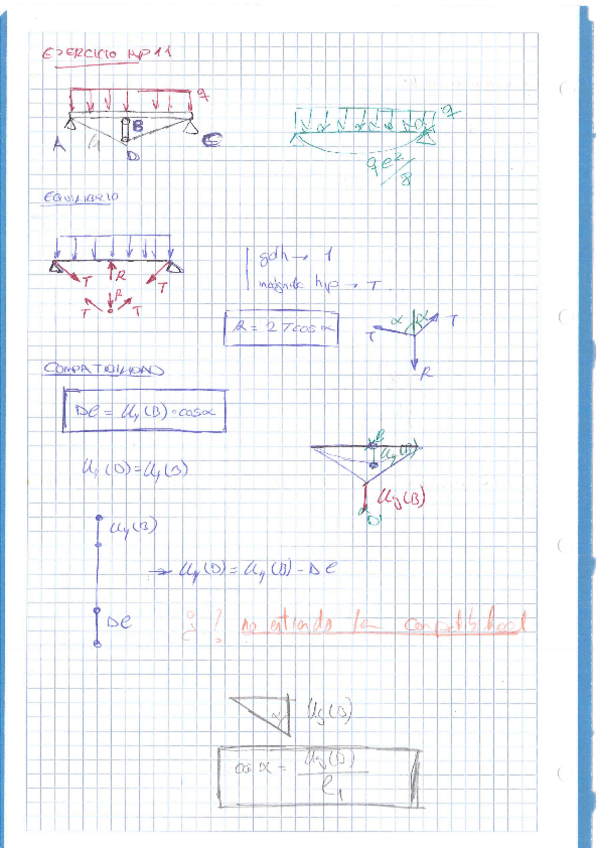 EJERCICIO Nº 11
q
A
B
C
D
q
ql²/8
EQUILIBRIO
gdh → 1
incógnita hip → T
T
R
T
R
T
T
R = 2Tcosα
α
α
T
T
R
COMPATIBILIDAD
Dl = Uy(B)·cosα
Uy(D) = Uy(B)
Uy(B)
Uy(B)
D'
Uy(B)
→ Uy(D) = Uy(B) - Dl
Dl
¿? no entiendo la compatibilidad
α
Uy(B)
cos α = Uy(D) / l₁